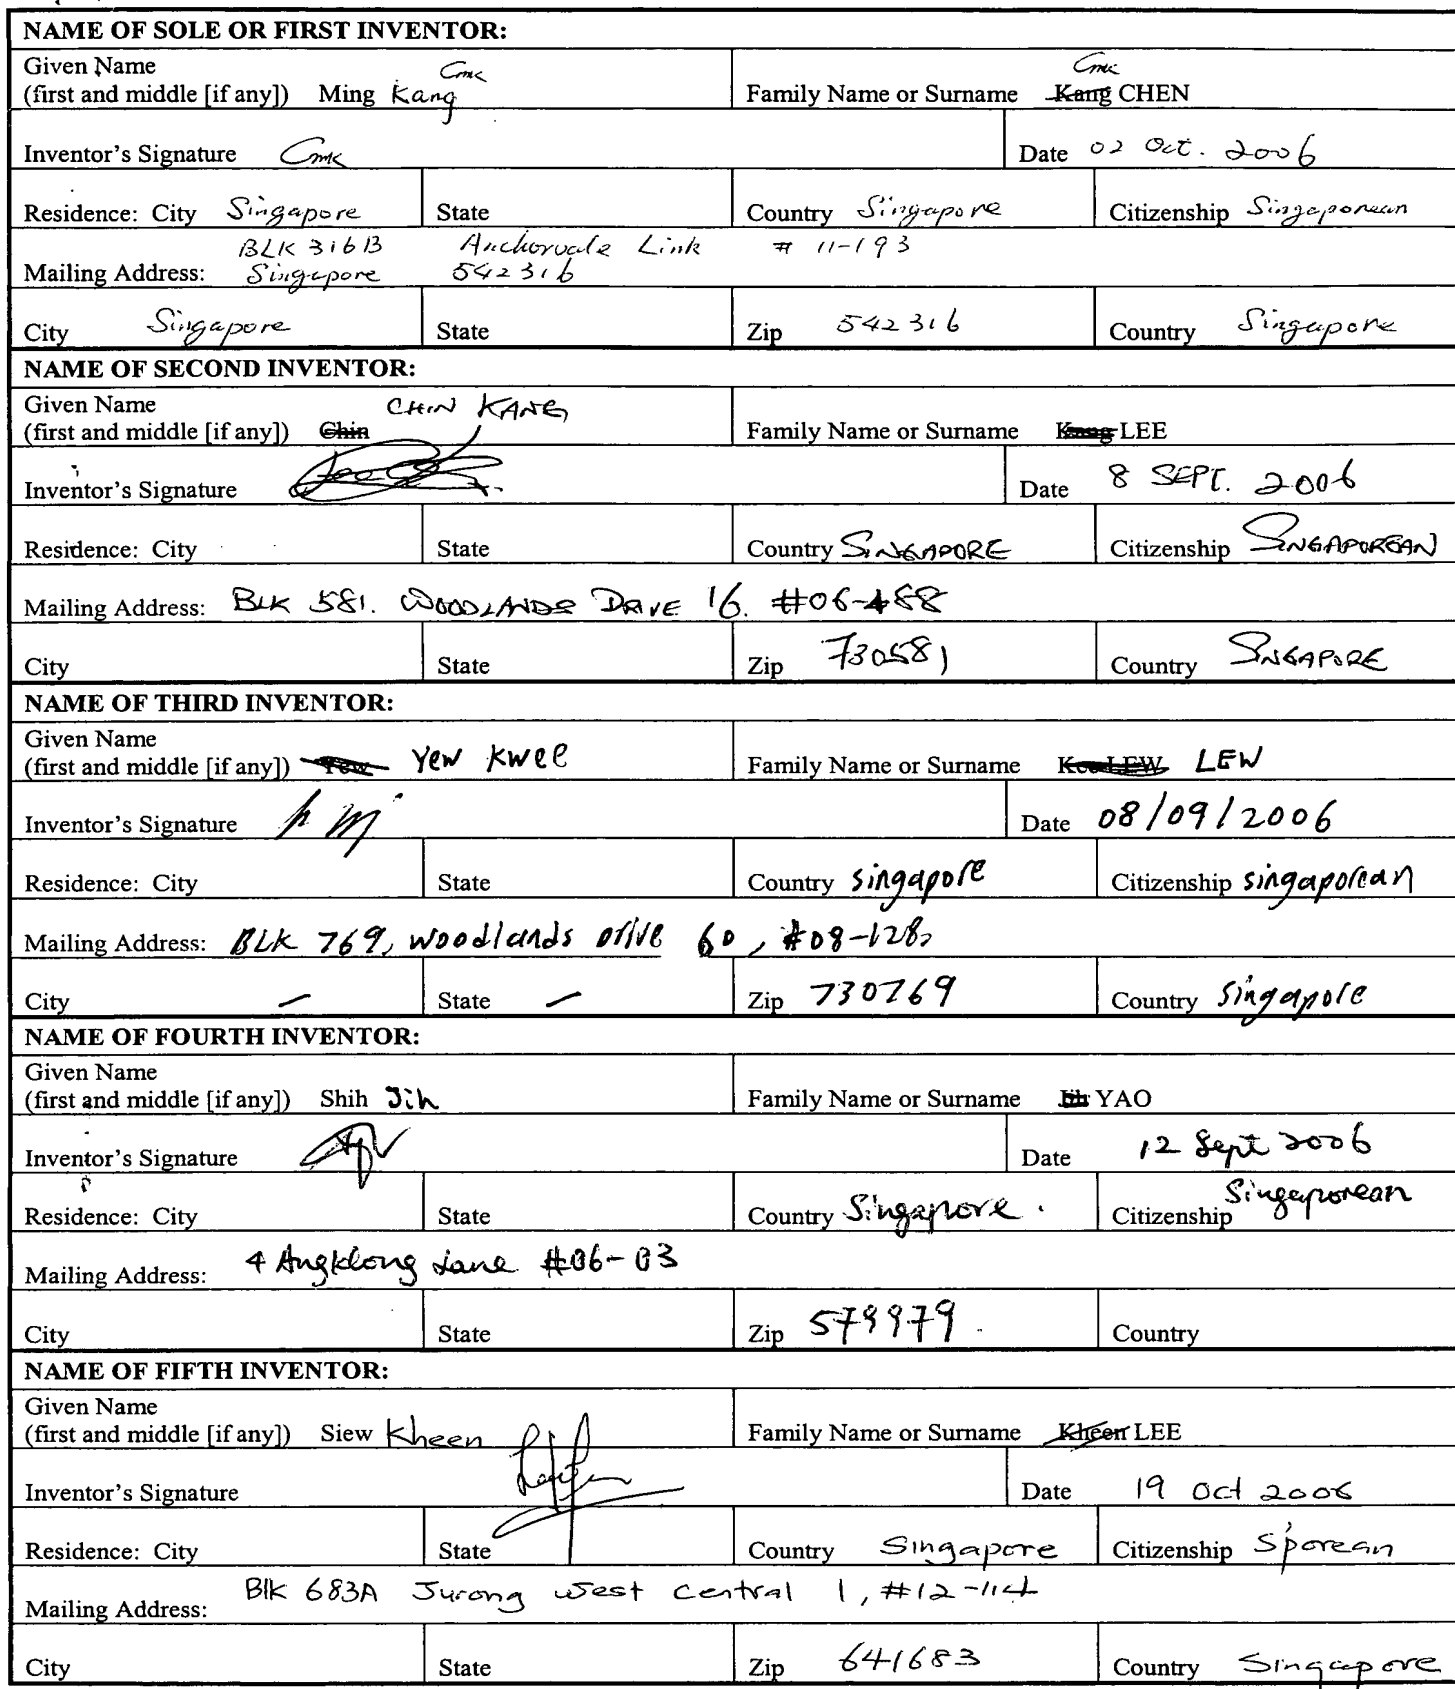 NAME OF SOLE OR FIRST INVENTOR:
Given Name
Cmk Cmk
(first and middle [if any]) Ming Kang Family Name or Surname Kang CHEN
Inventor's Signature Cmk Date 02 Oct. 2006
Residence: City Singapore State Country Singapore Citizenship Singaporean
BLK 316B Anchorvale Link # 11-193
Mailing Address: Singapore 542316
City Singapore State Zip 542316 Country Singapore
NAME OF SECOND INVENTOR:
Given Name CHIN KANG
(first and middle [if any]) Chin Family Name or Surname Kang LEE
Inventor's Signature Date 8 SEPT. 2006
Residence: City State Country SINGAPORE Citizenship SINGAPOREAN
Mailing Address: BLK 581. WOODLANDS DRIVE 16. #06-488
City State Zip 730581 Country SINGAPORE
NAME OF THIRD INVENTOR:
Given Name
(first and middle [if any]) Yew Yew Kwee Family Name or Surname Kee LEW LEW
Inventor's Signature Date 08/09/2006
Residence: City State Country singapore Citizenship singaporean
Mailing Address: BLK 769, woodlands Drive 60, #08-128,
City – State – Zip 730769 Country singapore
NAME OF FOURTH INVENTOR:
Given Name
(first and middle [if any]) Shih Jih Family Name or Surname Jih YAO
Inventor's Signature Date 12 Sept 2006
Residence: City State Country Singapore. Citizenship Singaporean
Mailing Address: 4 Angklong Lane #06-03
City State Zip 579979 Country
NAME OF FIFTH INVENTOR:
Given Name
(first and middle [if any]) Siew Kheen Family Name or Surname Kheen LEE
Inventor's Signature Date 19 Oct 2006
Residence: City State Country Singapore Citizenship S'porean
Blk 683A Jurong West Central 1, #12-114
Mailing Address:
City State Zip 641683 Country Singapore